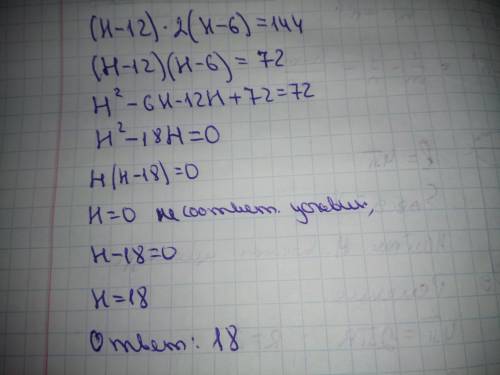 (H-12)·2(H-6)=144
(H-12)(H-6)=72
H²-6H-12H+72=72
H²-18H=0
H(H-18)=0
H=0 не соответ. условию,
H-18=0
H=18
Ответ: 18